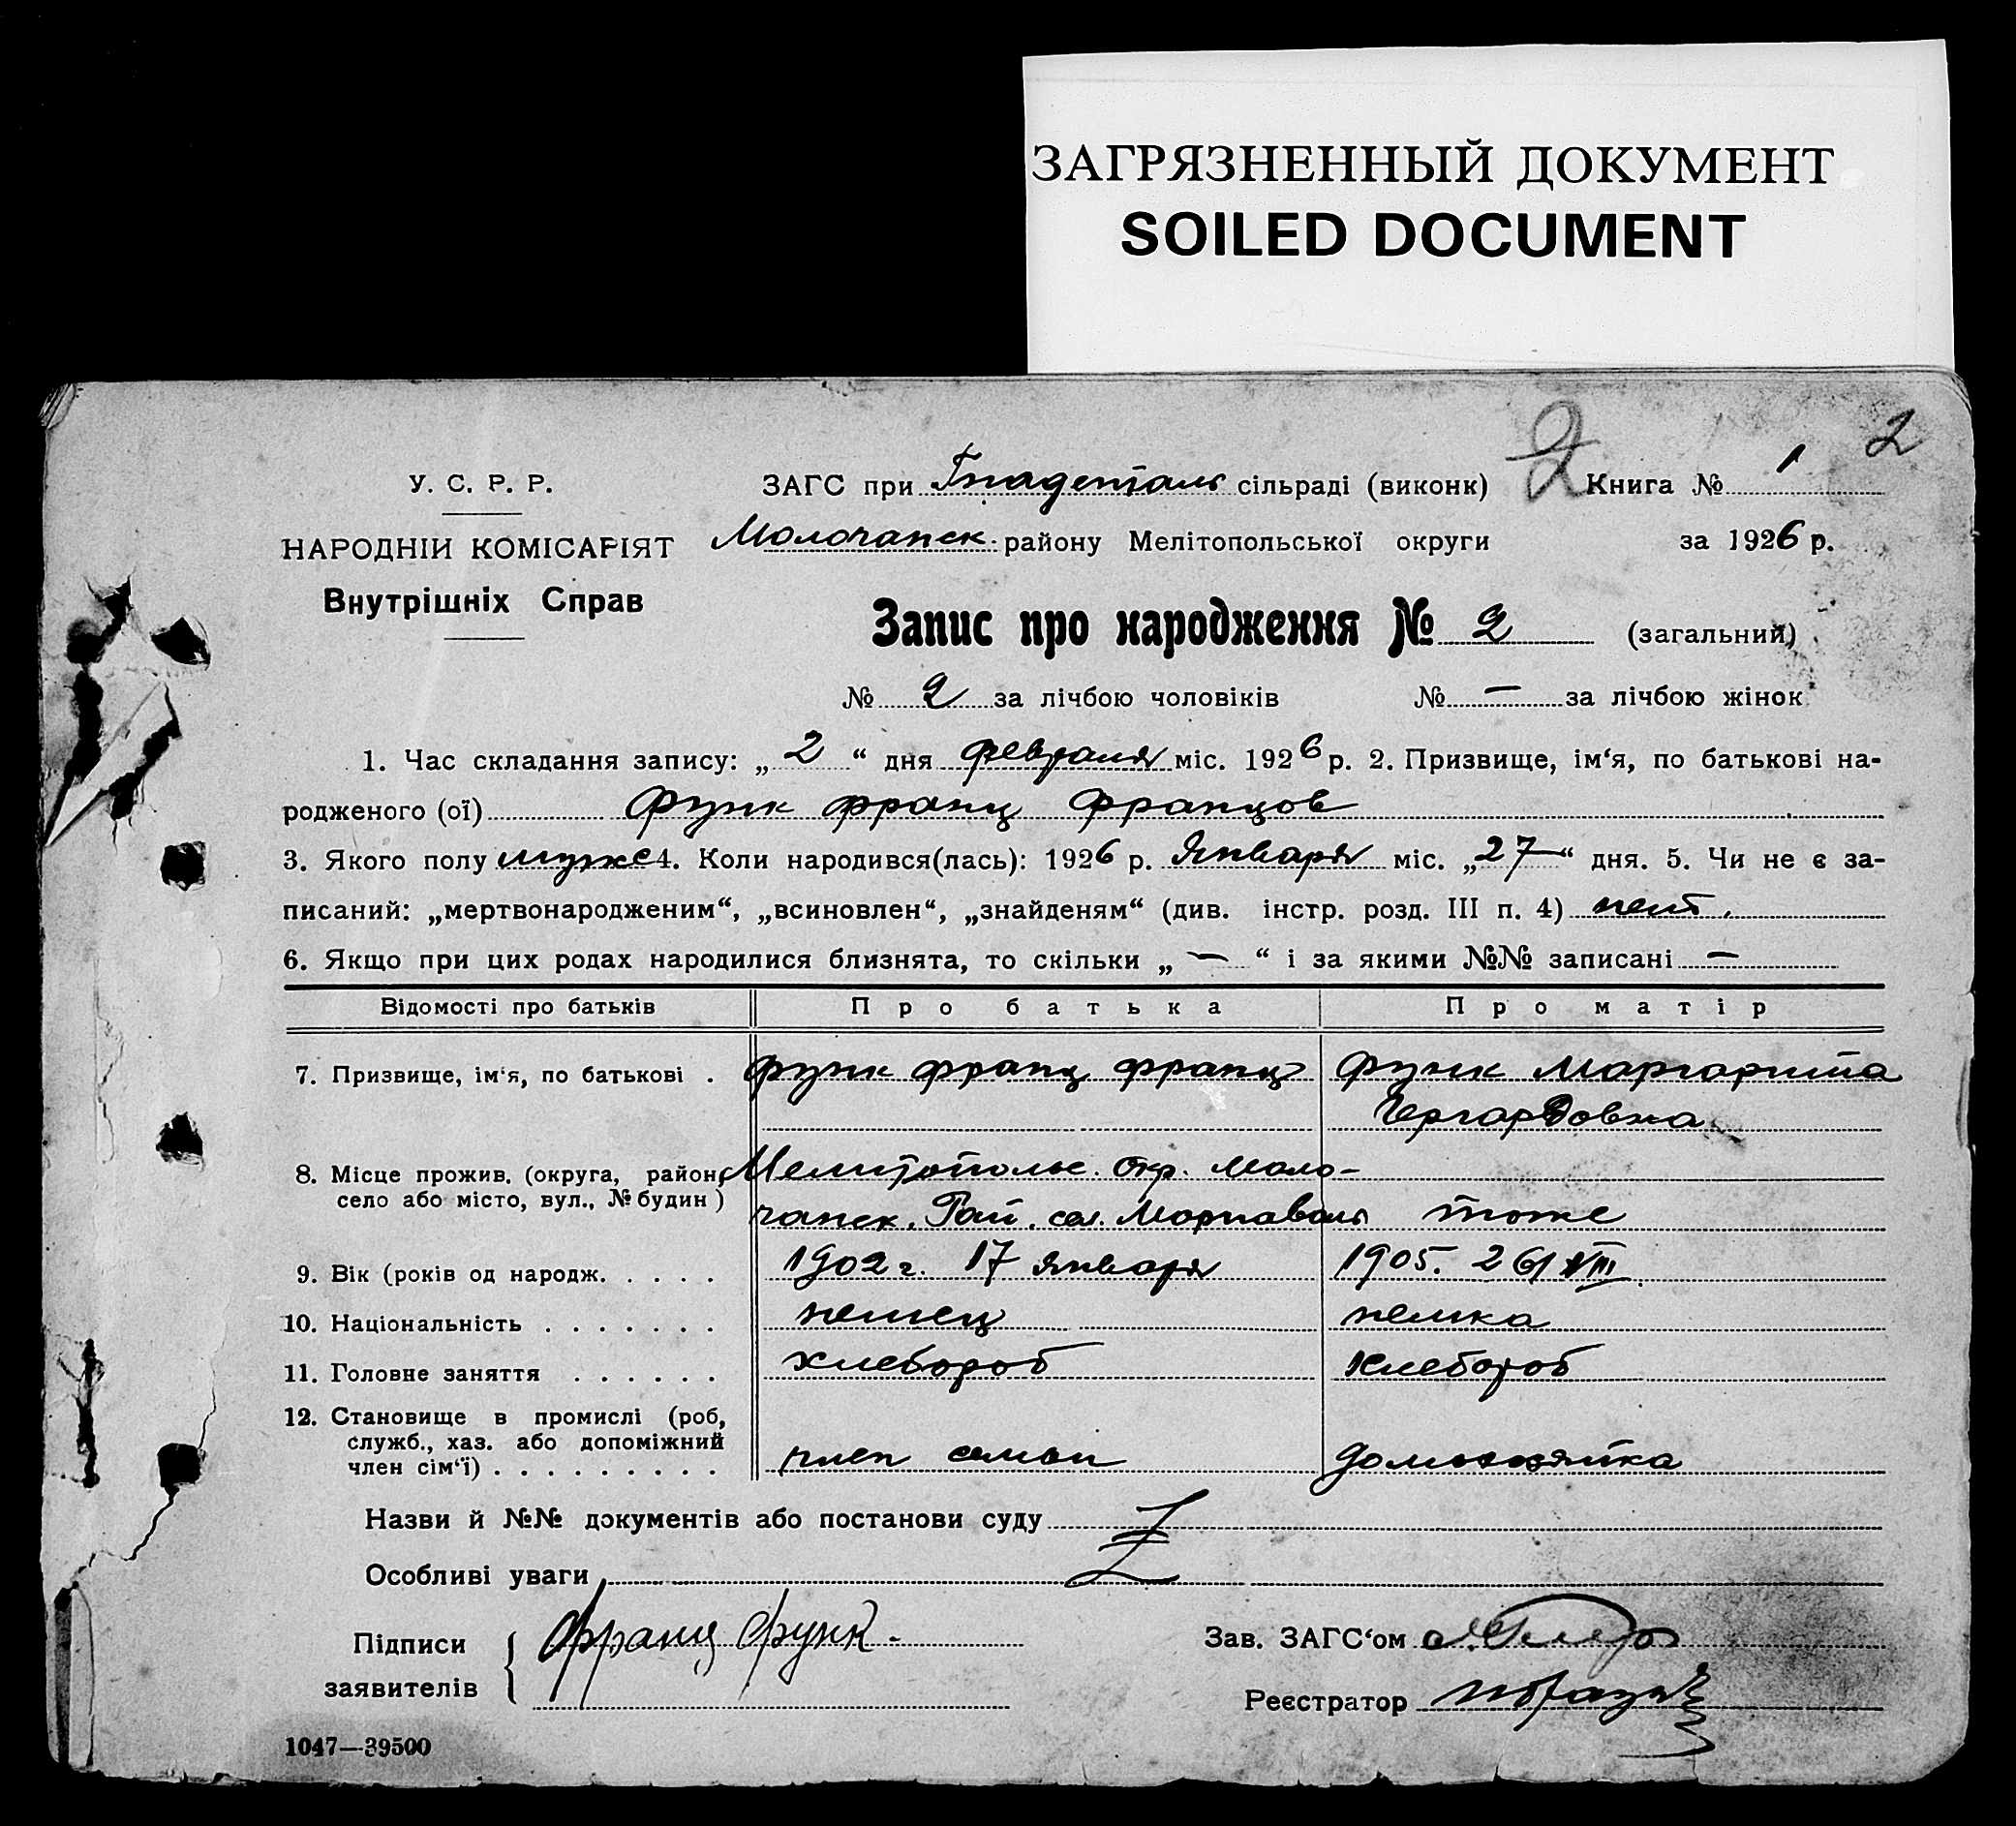 ЗАГРЯЗНЕННЫЙ ДОКУМЕНТ
SOILED DOCUMENT
2 2
У. С. Р. Р.
НАРОДНІЙ КОМІСАРІЯТ
Внутрішніх Справ
ЗАГС при Гнаденталь сільраді (виконк) Книга № 1
Молочанск. району Мелітопольської округи за 1926 р.
Запис про народження № 2 (загальний)
№ 2 за лічбою чоловіків № — за лічбою жінок
1. Час складання запису: „2“ дня февраля міс. 1926 р. 2. Призвище, ім‘я, по батькові на-
родженого (ої) Функ Франц Францов
3. Якого полу мужс 4. Коли народився(лась): 1926 р. Января міс. „27“ дня. 5. Чи не є за-
писаний: „мертвонародженим“, „всиновлен“, „знайденям“ (див. інстр. розд. III п. 4) нет.
6. Якщо при цих родах народилися близнята, то скільки „—“ і за якими №№ записані —
Відомості про батьків Про батька Про матір
7. Призвище, ім‘я, по батькові . Функ Франц Франц Функ Маргарита
Гергардовна
8. Місце прожив. (округа, район, Мелитопольс. Окр. Моло-
село або місто, вул., № будин ) чанск. Рай. сел. Мариаваль тоже
9. Вік (років од народж. . . . . 1902 г. 17 января 1905. 26/VIII.
10. Національність . . . . . . . немец немка
11. Головне заняття . . . . . . хлебороб хлебороб
12. Становище в промислі (роб,
служб., хаз. або допоміжний
член сім‘ї) . . . . . . . . . член семьи домохозяйка
Назви й №№ документів або постанови суду
Особливі уваги
Підписи Франц Функ. Зав. ЗАГС‘ом
заявителів Реєстратор
1047—39500